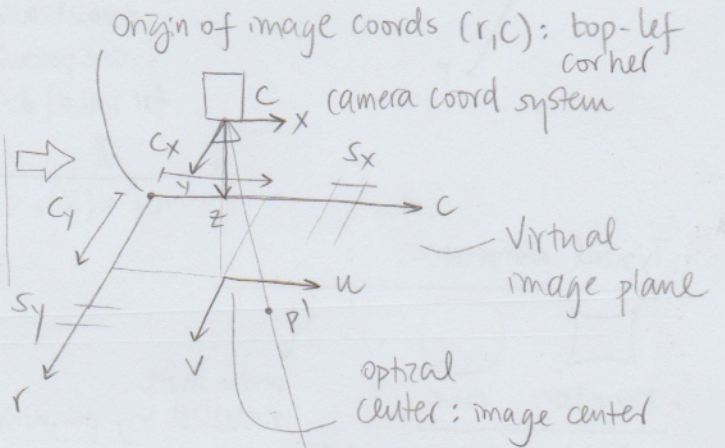 Orizin of image coords (r,c): bop-lef
corher
C
camera coord system
x
Cx
Sx
y
z
c
Cy
Virtual
image plane
u
Sy
p'
v
r
optizal
center: image center